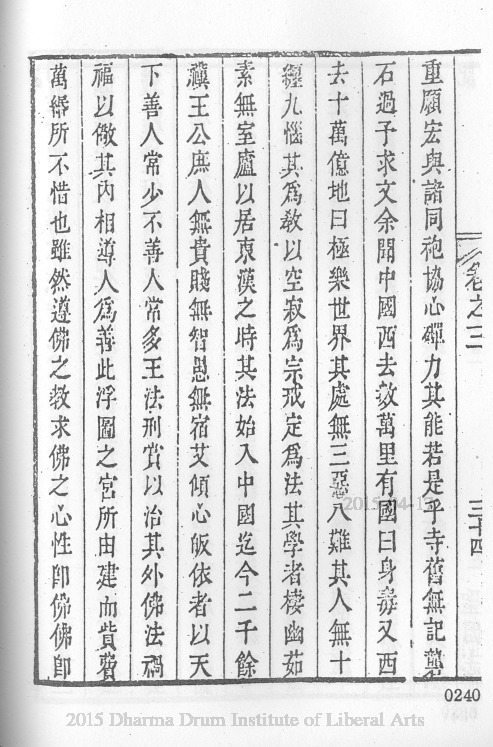 卷之二
三十四
重願宏與諸同袍協心殫力其能若是乎寺舊無記礱
石過予求文余聞中國西去數萬里有國曰身毒又西
去十萬億地曰極樂世界其處無三惡八難其人無十
纏九惱其為敎以空寂為宗戒定為法其學者棲幽茹
素無室廬以居東漢之時其法始入中國迄今二千餘
禩王公庶人無貴賤無智愚無宿艾傾心皈依者以天
下善人常少不善人常多王法刑賞以治其外佛法禍
福以儆其內相導人為善此浮圖之宮所由建而貲費
萬緡所不惜也雖然遵佛之敎求佛之心性卽佛佛卽
2015-04-1
0240
2015 Dharma Drum Institute of Liberal Arts